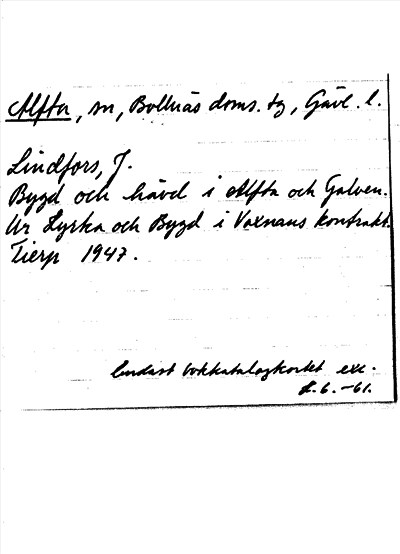 Alfta, sn, Bollnäs doms. tg, Gävl. l.
Lindfors, J.
Bygd och hävd i Alfta och Galven.
Ur Kyrka och Bygd i Voxnans kontrakt.
Tierp 1947.
Endast bokkatalogkortet exc.
6. -61.